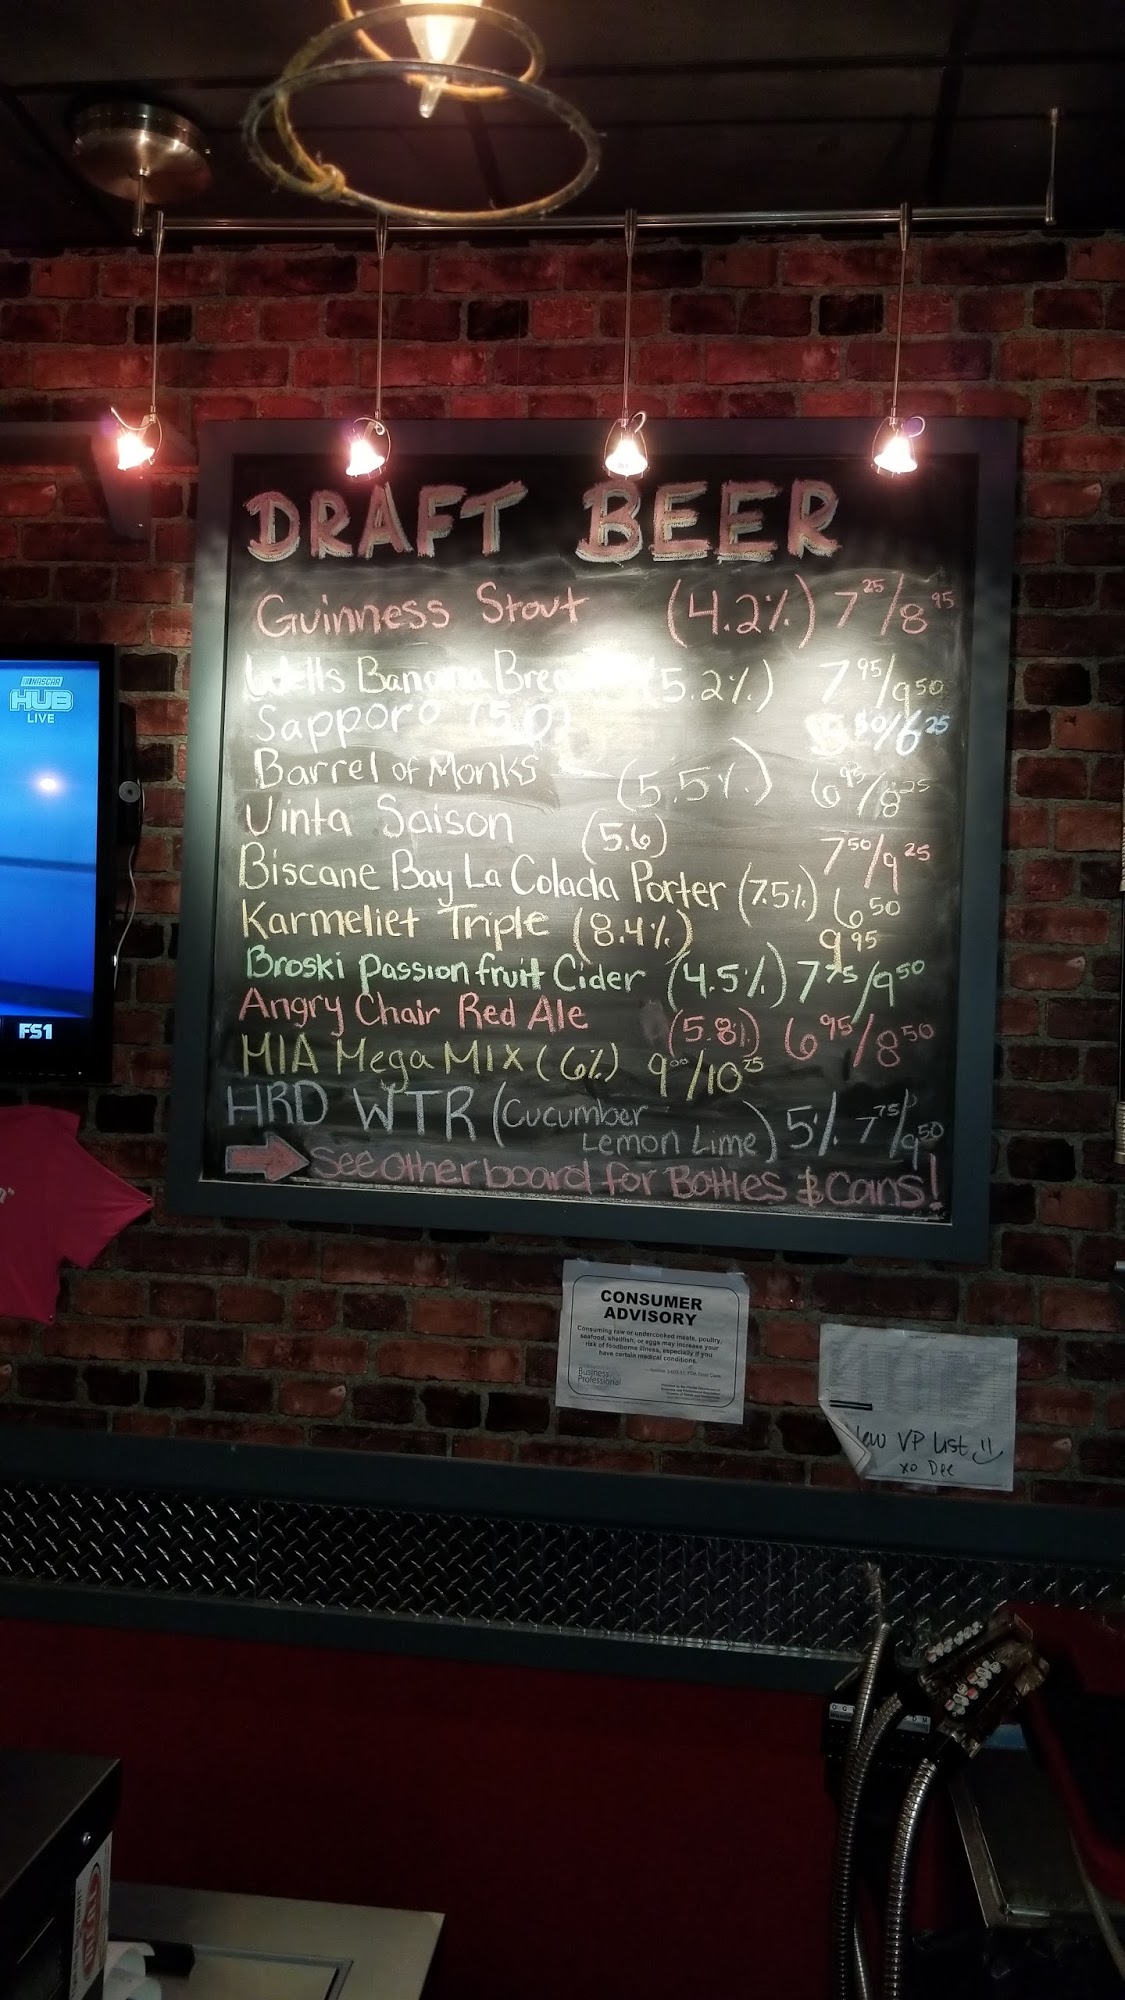 DRAFT BEER
Guinness Stout (4.2%) 7 25/8 95
Wells Banana Bread (5.2%) 7 95/9 50
Sapporo (5.0) 5 50/6 25
Barrel of Monks (5.5%) 6 95/8 25
Uinta Saison (5.6) 7 50/9 25
Biscane Bay La Colada Porter (7.5%) 6 50
Karmeliet Triple (8.4%) 9 95
Broski Passionfruit Cider (4.5%) 7 75/9 50
Angry Chair Red Ale (5.8%) 6 95/8 50
MIA Mega MIX (6%) 9 00/10 75
HRD WTR (Cucumber Lemon Lime) 5% 7 75/9 50
See other board for Bottles & Cans!
NASCAR
HUB
LIVE
FS1
CONSUMER
ADVISORY
Consuming raw or undercooked meats, poultry,
seafood, shellfish, or eggs may increase your
risk of foodborne illness, especially if you
have certain medical conditions.
Business
Professional
VP List
xo Dee